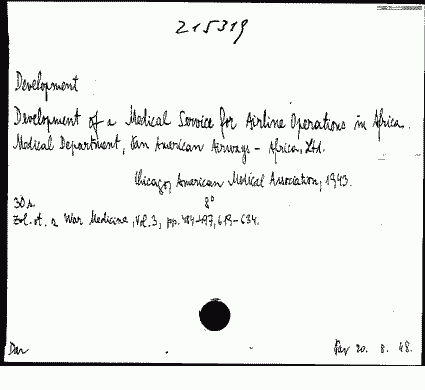 215319
Development
Development of a Medical Service for Airline Operations in Africa.
Medical Department, Pan American Airways - Africa, Ltd.
Chicago, American Medical Association, 1943.
30 s. 8°
Zvl. ot. z War Medicine, Vol. 3, pp. 484-497, 619-634.
Dar 20. 8. 48.